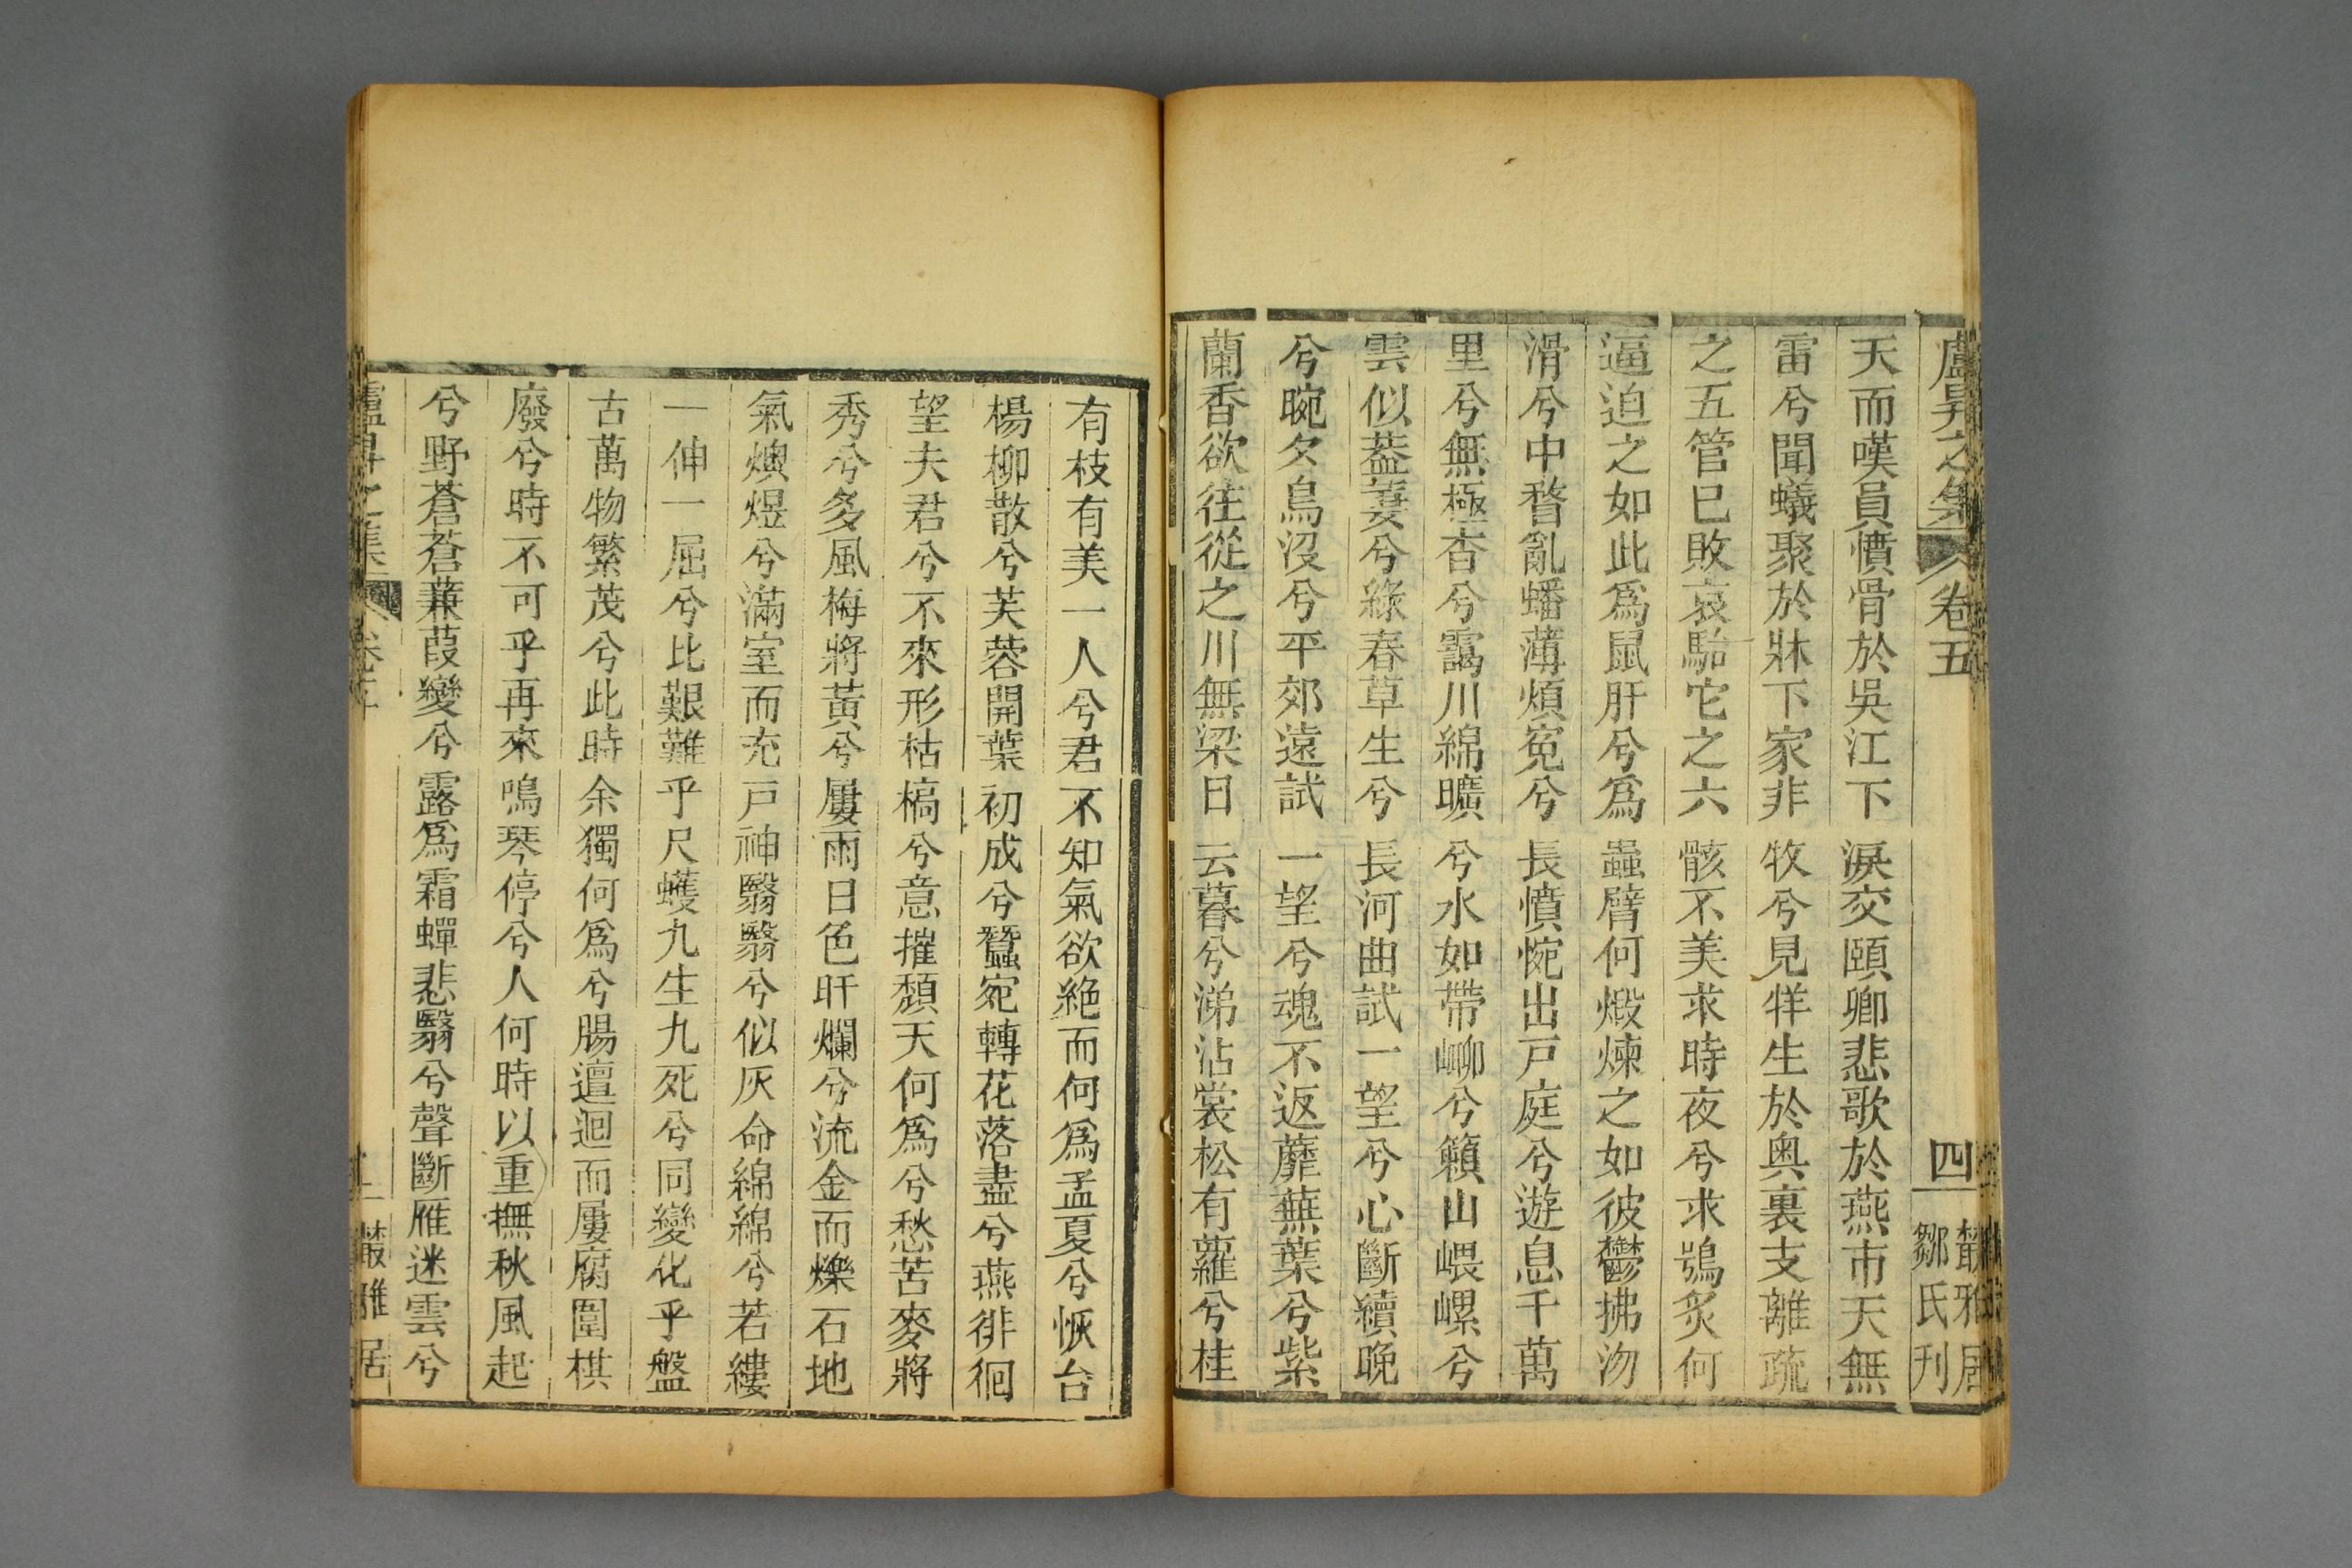 盧昇之集 卷五 四 叢雅居鄒氏刊
天而嘆員憤骨於吳江下淚交頤卿悲歌於燕市天無
雷兮聞蟻聚於牀下家非牧兮見牂生於奥裏支離疏
之五管已敗哀駘它之六骸不美求時夜兮求鴞炙何
逼迫之如此爲鼠肝兮爲蟲臂何煅煉之如彼鬱拂沕
滑兮中瞀亂蟠薄煩冤兮長憤惋出戸庭兮遊息千萬
里兮無極杳兮靄川綿曠兮水如帶嶂兮籟山嵔嵺兮
雲似葢萋兮綠春草生兮長河曲試一望兮心斷續晚
兮晼夕鳥沒兮平郊遠試一望兮魂不返蘼蕪葉兮紫
蘭香欲往從之川無梁日云暮兮涕沾裳松有蘿兮桂
有枝有美一人兮君不知氣欲絶而何爲孟夏兮恢台
楊柳散兮芙蓉開葉初成兮蠶宛轉花落盡兮燕徘徊
望夫君兮不來形枯槁兮意摧頽天何爲兮愁苦麥將
秀兮多風梅將黃兮屢雨日色旰爛兮流金而爍石地
氣燠煜兮滿室而充戸神翳翳兮似灰命綿綿兮若縷
一伸一屈兮比艱難乎尺蠖九生九死兮同變化乎盤
古萬物繁茂兮此時余獨何爲兮腸邅迴而屢腐圍棋
廢兮時不可乎再來鳴琴停兮人何時以重撫秋風起
兮野蒼蒼蒹葭變兮露爲霜蟬悲翳兮聲斷雁迷雲兮
叢雅居